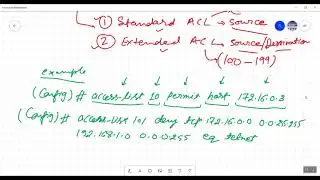 ① Standard ACL → source
② Extended ACL → source/Destination
(100 - 199)
example
(Config)# access-list 10 permit host 172.16.0.3
(Config)# access-list 101 deny tcp 172.16.0.0 0.0.255.255
192.168.1.0 0.0.0.255 eq telnet